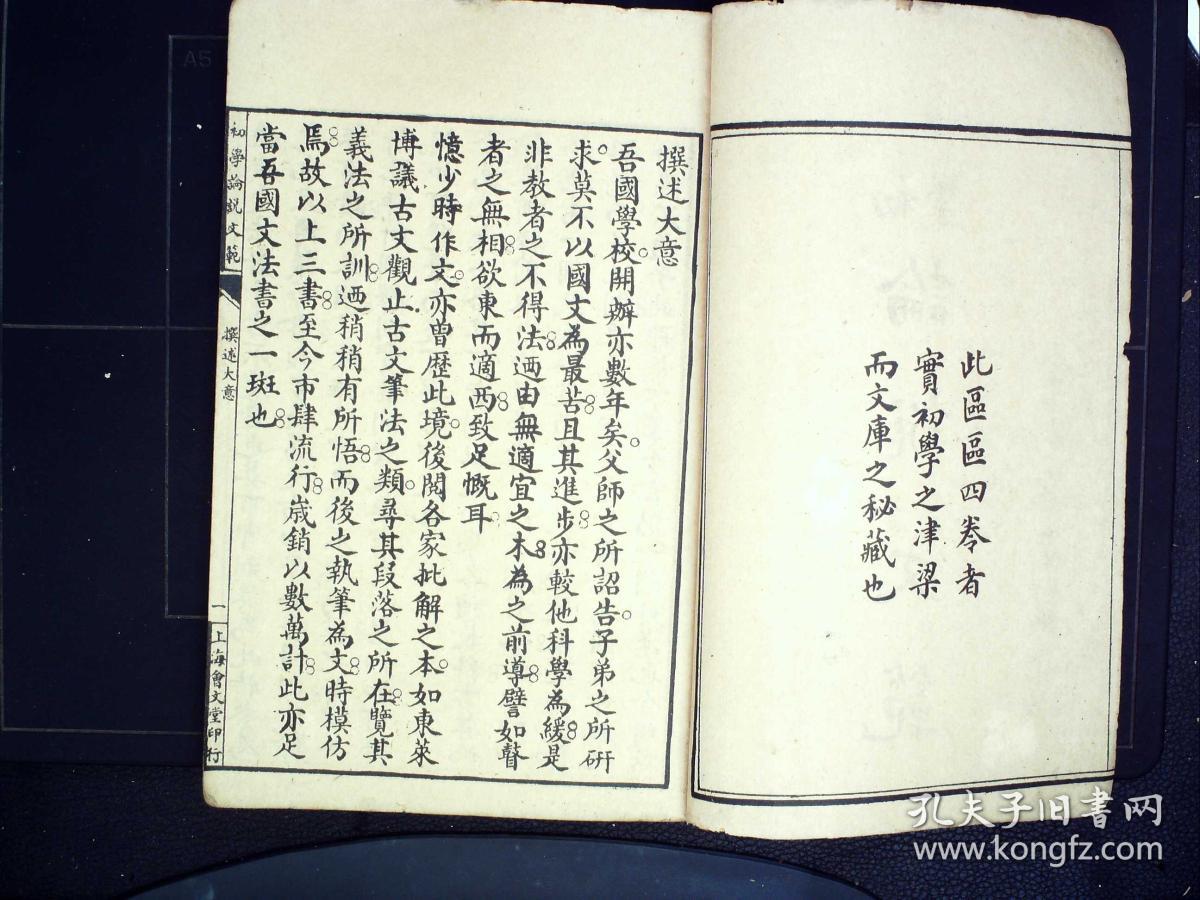 此區區四卷者
實初學之津梁
而文庫之秘藏也
撰述大意
吾國學校開辦亦數年矣父師之所詔告子弟之所研
求莫不以國文為最苦且其進步亦較他科學為緩是
非教者之不得法迺由無適宜之本為之前導譬如瞽
者之無相欲東而適西致足慨耳
憶少時作文亦曾歷此境後閱各家批解之本如東萊
博議古文觀止古文筆法之類尋其段落之所在覽其
義法之所訓迺稍稍有所悟而後之執筆為文時模仿
焉故以上三書至今市肆流行歲銷以數萬計此亦足
當吾國文法書之一斑也
初學論說文範
撰述大意
一
上海會文堂印行
A5
孔夫子旧书网
www.kongfz.com